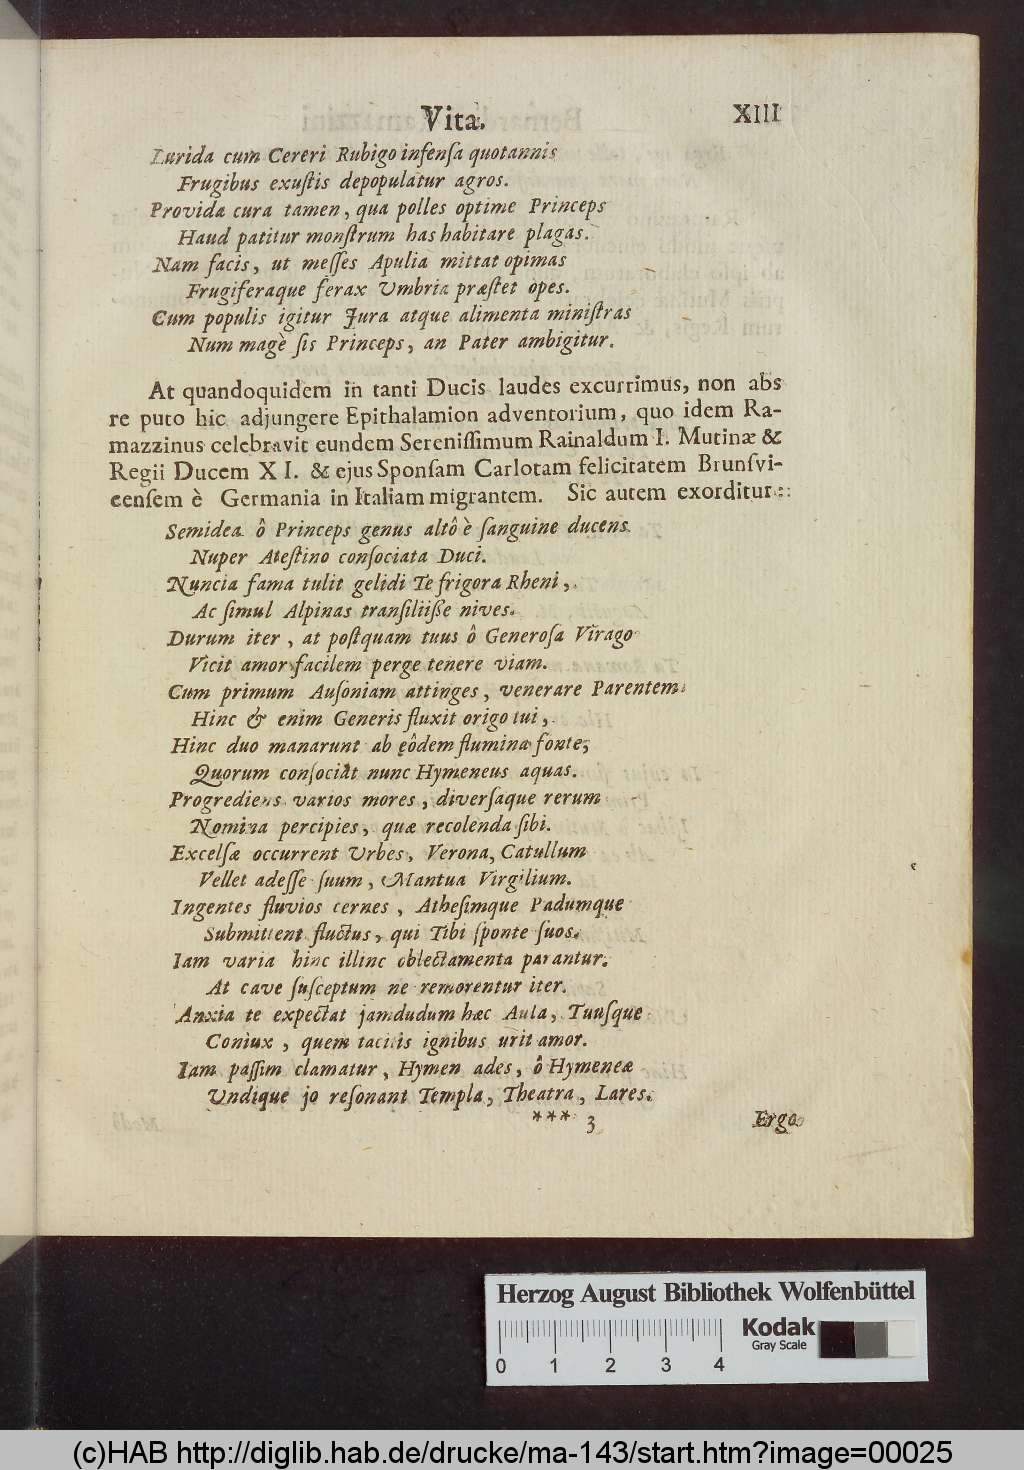 Vita. XIII
Lurida cum Cereri Rubigo infenſa quotannis
Frugibus exuſtis depopulatur agros.
Provida cura tamen, qua polles optime Princeps
Haud patitur monſtrum has habitare plagas.
Nam facis, ut meſſes Apulia mittat opimas
Frugiferaque ferax Umbria præſtet opes.
Cum populis igitur Jura atque alimenta miniſtras
Num magè ſis Princeps, an Pater ambigitur.
At quandoquidem in tanti Ducis laudes excurrimus, non abs
re puto hic adjungere Epithalamion adventorium, quo idem Ra-
mazzinus celebravit eundem Sereniſſimum Rainaldum I. Mutinæ &
Regii Ducem XI. & ejus Sponſam Carlotam felicitatem Brunſvi-
cenſem è Germania in Italiam migrantem. Sic autem exorditur:
Semidea ô Princeps genus altô è ſanguine ducens
Nuper Ateſtino conſociata Duci.
Nuncia fama tulit gelidi Te frigora Rheni,
Ac ſimul Alpinas tranſiliiße nives.
Durum iter, at poſtquam tuus ô Generoſa Virago
Vicit amor facilem perge tenere viam.
Cum primum Auſoniam attinges, venerare Parentem
Hinc & enim Generis fluxit origo tui,
Hinc duo manarunt ab eôdem flumina fonte,
Quorum conſociat nunc Hymeneus aquas.
Progrediens varios mores, diverſaque rerum
Nomina percipies, quæ recolenda ſibi.
Excelſæ occurrent Urbes, Verona, Catullum
Vellet adeſſe ſuum, Mantua Virgilium.
Ingentes fluvios cernes, Atheſimque Padumque
Submittent fluctus, qui Tibi ſponte ſuos.
Iam varia hinc illinc oblectamenta parantur.
At cave ſuſceptum ne remorentur iter.
Anxia te expectat jamdudum hæc Aula, Tuuſque
Coniux, quem tacitis ignibus urit amor.
Iam paſſim clamatur, Hymen ades, ô Hymeneæ
Undique jo reſonant Templa, Theatra, Lares.
*** 3 Ergo
Herzog August Bibliothek Wolfenbüttel
Kodak
Gray Scale
0 1 2 3 4
(c)HAB http://diglib.hab.de/drucke/ma-143/start.htm?image=00025